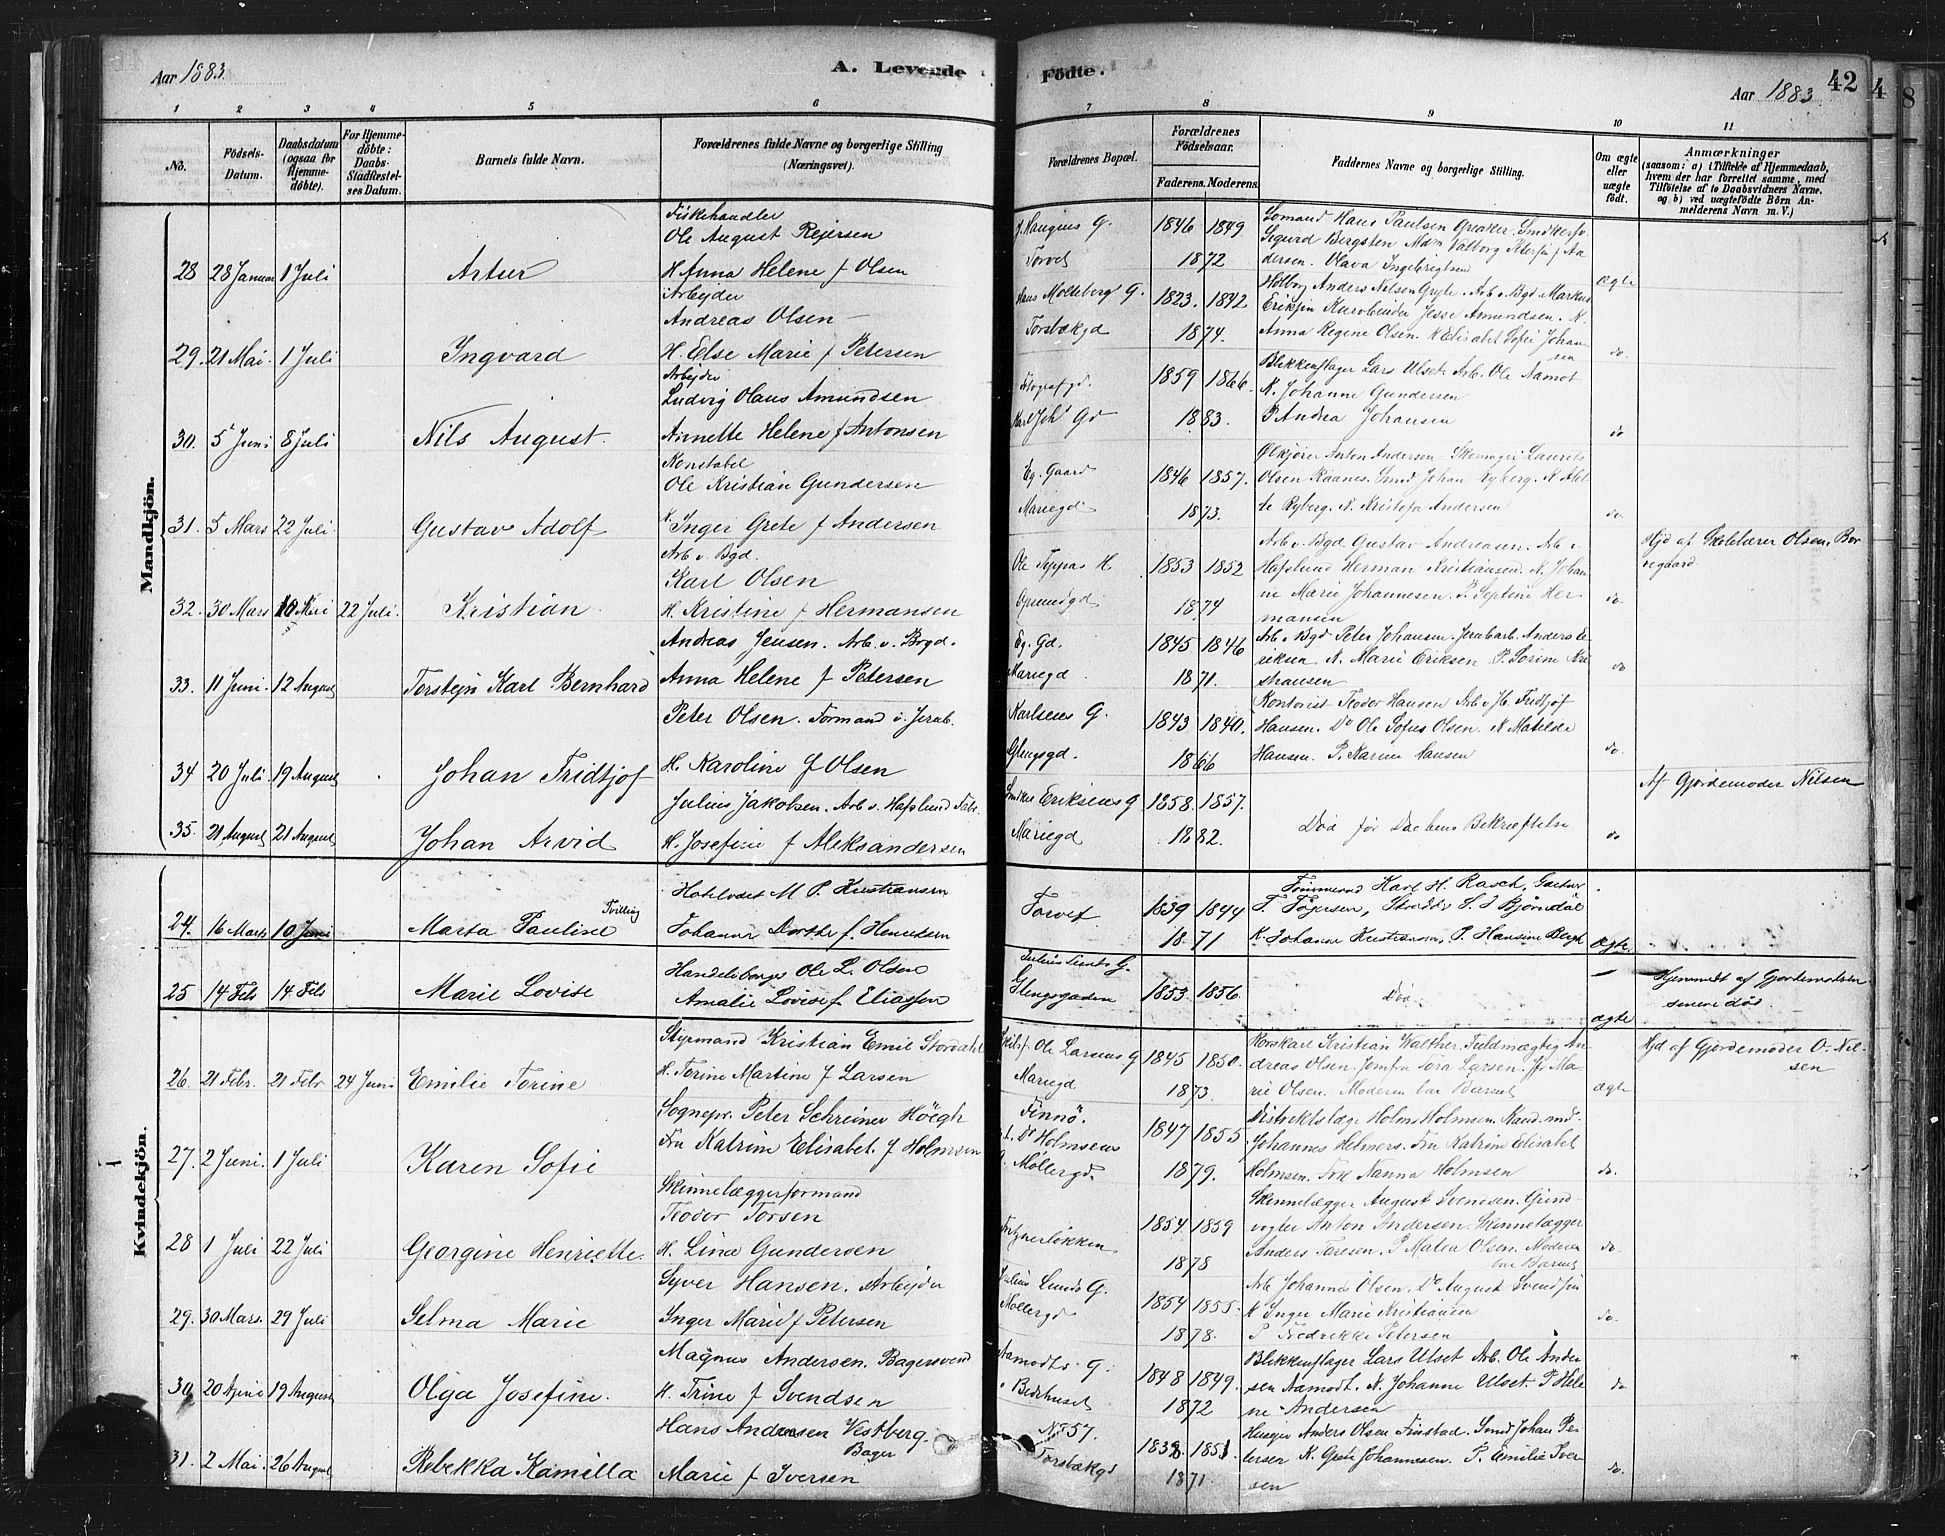 Aar 1883.
A. Levende
Födte.
42
Aar 1883
1 2 3 4 5 6 7 8 9 10 11
No.
Födsels-
Datum.
Daabsdatum
(ogsaa for
Hjemme-
döbte).
For Hjemme-
döbte:
Daabs-
Stadfæstel-
ses Datum.
Barnets fulde Navn.
Forældrenes fulde Navne og borgerlige Stilling
(Næringsvei).
Forældrenes Bopæl.
Forældrenes
Födselsaar.
Faderens. Moderens.
Faddernes Navne og borgerlige Stilling.
Om ægte
eller
uægte
födt.
Anmærkninger
(saasom: a) i Tilfælde af Hjemmedaab,
hvem der har forrettet samme, med
Tilföielse af to Daabsvidners Navne,
og b) ved uægtefödte Börn An-
melderens Navn m. V.)
Mandkjön.
Fiskehandler
Ole August Rejersen
28 28 Januar 1 Juli Artur H. Anna Helene f Olsen
Haugens G. 1846 1849
Torvet 1872
Lomand Hans Paulsen Greaker.
Sigurd Bergsten
dersen. Olava Ingebrigtsen
Ægte
Arbejder
Andreas Olsen
29. 21 Mai. 1 Juli Ingvard H. Else Marie f Petersen
Hans Molteberg G. 1823. 1842
Torsbækgd 1874.
Anders Nilsen Gryte. Arb. v. Bgd. Markus
Kurvbinder Jesse Amundsen. K.
Anna Regine Olsen. K Elisabet Sofie Johan-
sen
do.
Arbejder
Ludvig Olaus Amundsen
30. 5 Juni 8 Juli Nils August. Annette Helene f Antonsen
Fotografgd. 1859 1866.
Karl Johs Gd 1883.
Blikkenslager Lars Ulset. Arb. Ole Aamot
K. Johanne Gundersen
P. Andrea Johansen
do
Konstabel
Ole Kristian Gundersen
31. 5 Mars 22 Juli. Gustav Adolf H. Inger Grete f Andersen
Eg. Gaard 1846 1857.
Mariegd 1873.
Ølkjører Anton Andersen. Skomager Laurits
Olsen Raanes. Smed Johan Ryberg. K
Ryberg. K. Kristofa Andersen
do
Arb v. Bgd.
Karl Olsen
32. 30 Mars 10 Mai 22 Juli. Kristian. H. Kristine f Hermansen
Ole Toppas H. 1853 1852
1874
Arb v. Bgd Gustav Andreasen. Arb v.
Hafslund Herman Kristiansen. K. Johan
ne Marie Johannesen. P. Septine Her
mansen
do
Hjd af Skolelærer Olsen, Bor
regaard.
Andreas Jensen. Arb. v. Brgd.
33. 11 Juni. 12 August Torstejn Karl Bernhard Anna Helene f Petersen
Eg. Gd. 1845 1846
Mariegd 1871.
Arb v. Bgd Peter Johansen. Jernbarb. Anders E-
riksen K. Marie Eriksen P. Sorine Kri
stiansen
do
Peter Olsen. Formand v. Jernb.
34 20 Juli. 19 August Johan Fridtjof H. Karoline f Olsen
Karlsens G. 1843 1840.
Glengsgd. 1866
Kontorist Teodor Hansen Arb v. H. Fridtjof
Hansen. Do Ole Sofus Olsen. K Matilde
Hansen. P. Karine Hansen
do.
Julius Jakobsen. Arb. v. Hafslund Fabr.
35. 21 August 21 August Johan Arvid H. Josefine f Aleksandersen
Eriksens G 1858. 1857.
Mariegd 1882.
Död før Daabens Bekræftelse
do
Af Gjordemoder Nilsen
Kvindekjön.
Hotelvært M. P. Kristiansen
24. 16 Marts 10 Juni Marta Pauline Tvilling Johanne Dorthe f. Henriksen
Torvet 1839 1844
1871
Karl H. Rasch,
T. Töjersen, S. J Bjørndal
K. Johanne Kristiansen, P. Hansine Bergh
Ægte.
Handelsborger Ole L. Olsen
25 14 Feb 14 Feb Marie Lovise Amalie Lovise f Eliassen
Julius Lunds G.
Glengsgaden 1853 1856.
Död
ægte
Hjemmedt af Gjordemoderen
senere död.
Styrmand Kristian Emil Stordahl
26. 21 Febr. 21 Febr 24 Juni Emilie Torine H. Torine Martine f Larsen
Ole Larsens G 1845 1850.
Mariegd 1873.
Korskarl Kristian Walther. Fuldmægtig An
dreas Olsen. Jomfru Tora Larsen. Jfr Ma
rie Olsen. Moderen bar Barnet
ægte
Hjd af Gjordemoder O. Nil-
sen
Sognepr. Peter Schreiner Höegh
27. 2 Juni. 1 Juli Karen Sofie Fru Katrine Elisabet. f Holmsen
Finnö.
Dr Holmsens 1847 1855.
Möllergd. 1879.
Distriktslæge Holm Holmsen. Kand. med.
Johannes Helmers. Fru Katrine Elisabet
Holmsen. Frk Nanna Holmsen
do.
Skinnelæggerformand
Teodor Torsen
28 1 Juli 22 Juli Georgine Henriette. H. Lina Gundersen
1854. 1859
1878
Skinnelægger August Svendsen. Grind-
vogter Anton Andersen. Skinnelægger
Anders Toresen. P Matea Olsen. Moderen
bar Barnet
do.
Syver Hansen. Arbejder
29. 30 Mars. 29 Juli Selma Marie Inger Marie f Petersen
Julius Lunds G. 1854 1855.
Möllergd 1878.
Arb Johannes Olsen. Do August Svendsen
K Inger Marie Kristiansen
P Fredrikke Petersen
do
Magnus Andersen. Bagersvend
30 20 April 19 August Olga Josefine. H. Trine f Svendsen
Aamodts G. 1848 1849.
Bedehuset 1872
Blikkenslager Lars Ulset Arb. Ole Ander
sen Aamodt. K. Johanne Ulset. P Hele
ne Andersen
do
Hans Andersen Vestberg.
Bager
31. 2 Mai. 26 August Rebekka Kamilla Marie f Iversen
No 57. 1838. 1851
Torsbækgd 1871.
Anders Olsen Finstad. Smed Johan Pe-
tersen K. Grete Johannesen. P. Emilie Iver
sen
do.